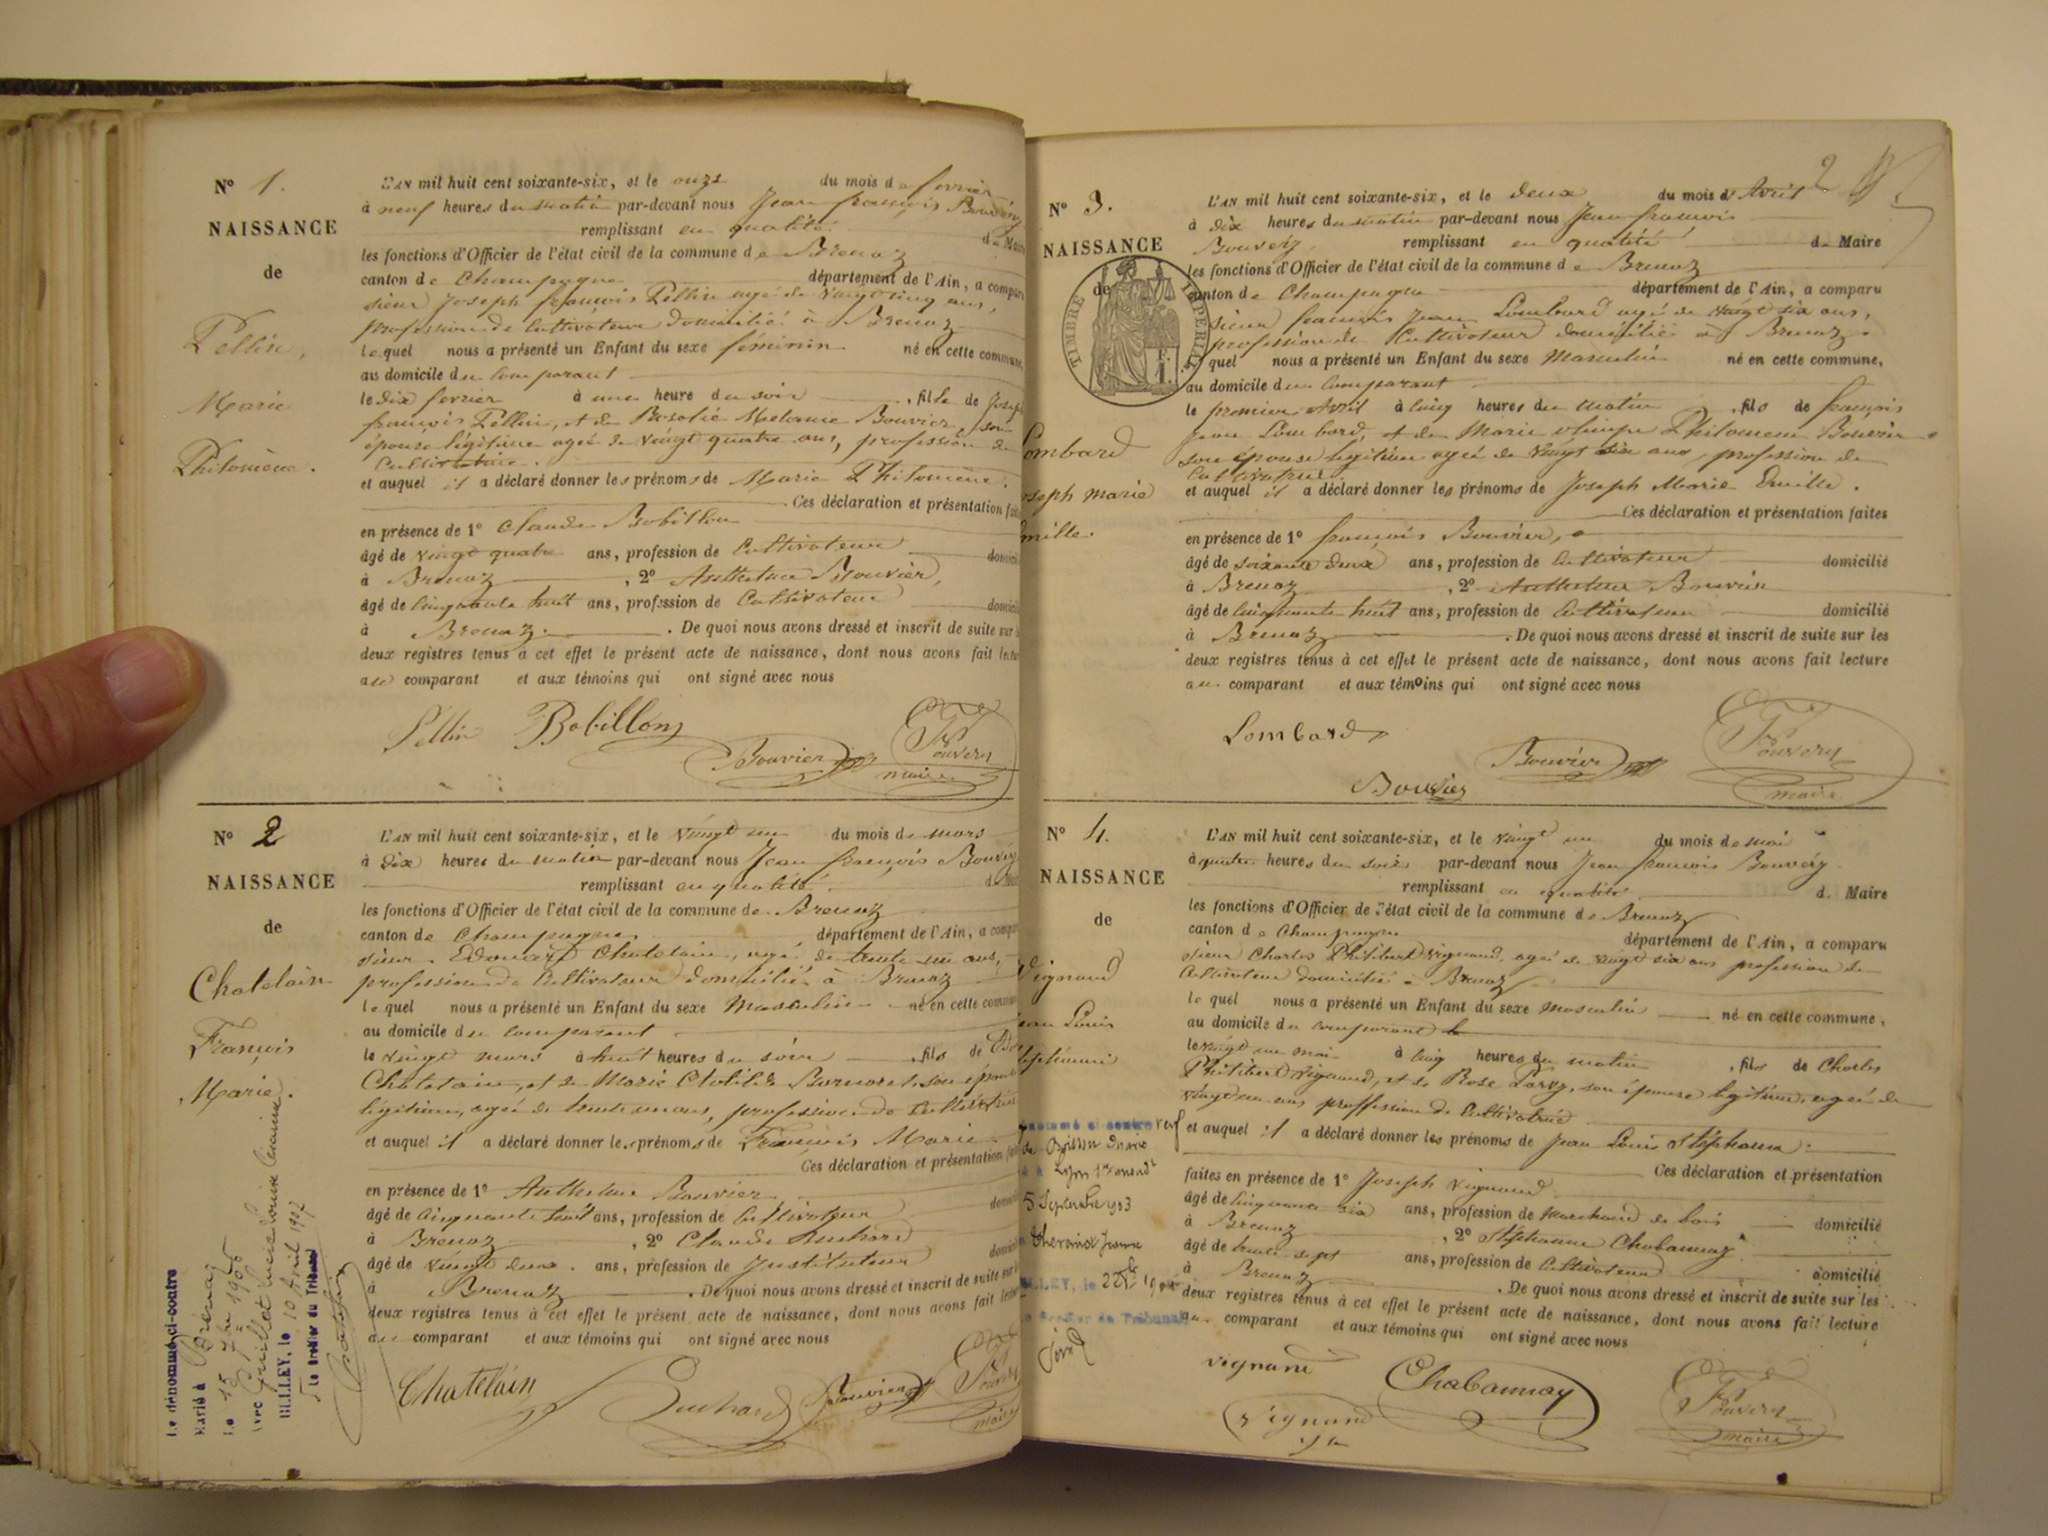 N° 1.
NAISSANCE
de
Pellin,
Marie
Philomène.
L'AN mil huit cent soixante-six, et le onze du mois de fevrier
à neuf heures du matin par-devant nous Jean françois Bouvery
remplissant en qualité de Maire
les fonctions d'Officier de l'état civil de la commune de Brenaz
canton de Champagne département de l'Ain, a comparu
sieur Joseph françois Pellin agé de vingt cinq ans,
profession de Cultivateur domicilié à Brenaz
lequel nous a présenté un Enfant du sexe féminin né en cette commune,
au domicile du Comparant
le dix fevrier à une heure du soir, fille de Joseph
françois Pellin, et de Rosalie Melanie Bouvier, son
épouse légitime agée de vingt quatre ans, profession de
Cultivatrice.
et auquel il a déclaré donner les prénoms de Marie Philomène.
Ces déclaration et présentation
en présence de 1° Claude Bobillon
âgé de vingt quatre ans, profession de Cultivateur
à Brenaz, 2° Anthelme Bouvier,
âgé de Cinquante huit ans, profession de Cultivateur
à Brenaz. De quoi nous avons dressé et inscrit de suite sur
deux registres tenus à cet effet le présent acte de naissance, dont nous avons fait
au comparant et aux témoins qui ont signé avec nous
Pellin Bobillon
Bouvier Bouvery
maire
N° 2
NAISSANCE
de
Chatelain
François
Marie.
L'AN mil huit cent soixante-six, et le vingt un du mois de mars
à dix heures du matin par-devant nous Jean françois Bouvery
remplissant en qualité
les fonctions d'Officier de l'état civil de la commune de Brenaz
canton de Champagne département de l'Ain, a
sieur Edouard Chatelain, agé de trente un ans,
profession de Cultivateur domicilié à Brenaz
lequel nous a présenté un Enfant du sexe Masculin né en cette commune
au domicile du Comparant
le vingt mars à huit heures du soir, fils de
Chatelain, et de Marie Clotilde Burnoret, son épouse
légitime, agée de trente un ans, profession de Cultivatrice
et auquel il a déclaré donner les prénoms de François Marie
Ces déclaration et présentation
en présence de 1° Anthelme Bouvier
âgé de Cinquante huit ans, profession de Cultivateur
à Brenaz, 2° Claude
âgé de vingt deux ans, profession de Instituteur
à Brenaz. De quoi nous avons dressé et inscrit de suite sur
deux registres tenus à cet effet le présent acte de naissance, dont nous avons fait
au comparant et aux témoins qui ont signé avec nous
Chatelain Bouvier
maire
Le dénommé ci-contre
Marié à Brénaz
Le 15 7bre 1906
avec Guillet
BELLEY, le 10 Avril 1907
Le Greffier du Tribunal
2
N° 3.
NAISSANCE
de
TIMBRE IMPERIAL
Lombard
Joseph marie
L'AN mil huit cent soixante-six, et le deux du mois d'Avril
à dix heures du matin par-devant nous Jean françois
Bouvery remplissant en qualité de Maire
les fonctions d'Officier de l'état civil de la commune de Brenaz
canton de Champagne département de l'Ain, a comparu
sieur françois Jean Lombard agé de vingt six ans,
profession de Cultivateur domicilié à Brenaz
lequel nous a présenté un Enfant du sexe Masculin né en cette commune,
au domicile du Comparant
le premier Avril à cinq heures du matin, fils de françois
Jean Lombard, et de Marie olimpe Philomene Bouvier
son épouse légitime agée de vingt six ans, profession de
Cultivatrice.
et auquel il a déclaré donner les prénoms de Joseph Marie Emille.
Ces déclaration et présentation faites
en présence de 1° françois Bouvier,
âgé de soixante deux ans, profession de Cultivateur domicilié
à Brenaz, 2° Anthelme Bouvier
âgé de Cinquante huit ans, profession de Cultivateur domicilié
à Brenaz. De quoi nous avons dressé et inscrit de suite sur les
deux registres tenus à cet effet le présent acte de naissance, dont nous avons fait lecture
au comparant et aux témoins qui ont signé avec nous
Lombard
Bouvier Bouvery
Bouvier maire
N° 4.
NAISSANCE
de
Vignand
Jean Louis
L'AN mil huit cent soixante-six, et le vingt un du mois de mai
à quatre heures du soir par-devant nous Jean françois Bouvery
remplissant en qualité de Maire
les fonctions d'Officier de l'état civil de la commune de Brenaz
canton de Champagne département de l'Ain, a comparu
sieur Charles Philibert Vignand, agé de vingt six ans profession de
Cultivateur domicilié à Brenaz
lequel nous a présenté un Enfant du sexe masculin né en cette commune,
au domicile du comparant
le vingt un mai à cinq heures du matin, fils de Charles
Philibert Vignand, et de Rose son épouse légitime, agée de
vingt un ans proffession de Cultivatrice
et auquel il a déclaré donner les prénoms de Jean Louis
Ces déclaration et présentation
faites en présence de 1° Joseph Vignand
âgé de Cinquante six ans, profession de Marchand de bois domicilié
à Brenaz, 2° Chabannay
âgé de trente sept ans, profession de Cultivateur domicilié
à Brenaz. De quoi nous avons dressé et inscrit de suite sur les
deux registres tenus à cet effet le présent acte de naissance, dont nous avons fait lecture
comparant et aux témoins qui ont signé avec nous
vignand Chabannay
Vignand Bouvery
maire